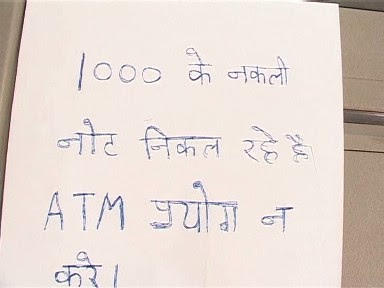 1000 के नकली
नोट निकल रहे है
ATM प्रयोग न
करे।